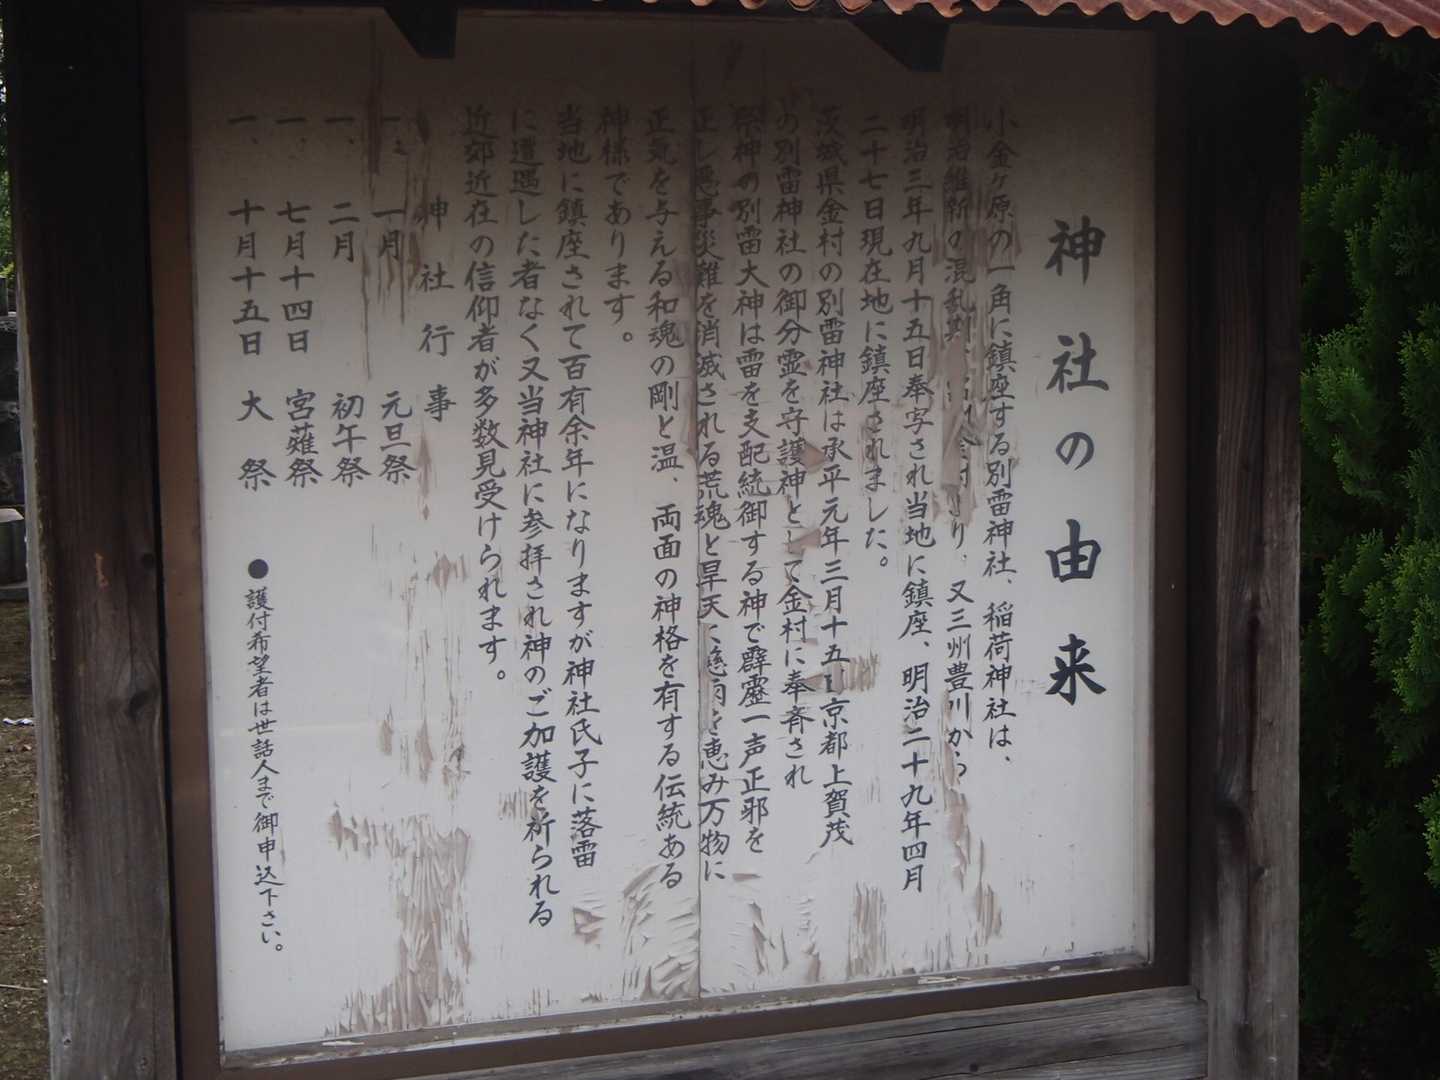 神社の由来
小金ヶ原の一角に鎮座する別雷神社、稲荷神社は、
明治維新の混乱期 金村より、又三州豊川から
明治三年九月十五日奉写され当地に鎮座、明治二十九年四月
二十七日現在地に鎮座されました。
茨城県金村の別雷神社は承平元年三月十五日京都上賀茂
の別雷神社の御分霊を守護神として金村に奉斉され
祭神の別雷大神は雷を支配統御する神で霹靂一声正邪を
正し悪事災難を消滅される荒魂と旱天に慈雨を恵み万物に
正気を与える和魂の剛と温、両面の神格を有する伝統ある
神様であります。
当地に鎮座されて百有余年になりますが神社氏子に落雷
に遭遇した者なく又当神社に参拝され神のご加護を祈られる
近郊近在の信仰者が多数見受けられます。
神社行事
一、一月 元旦祭
一、二月 初午祭
一、七月十四日 宮薙祭
一、十月十五日 大祭
●護付希望者は世話人まで御申込下さい。